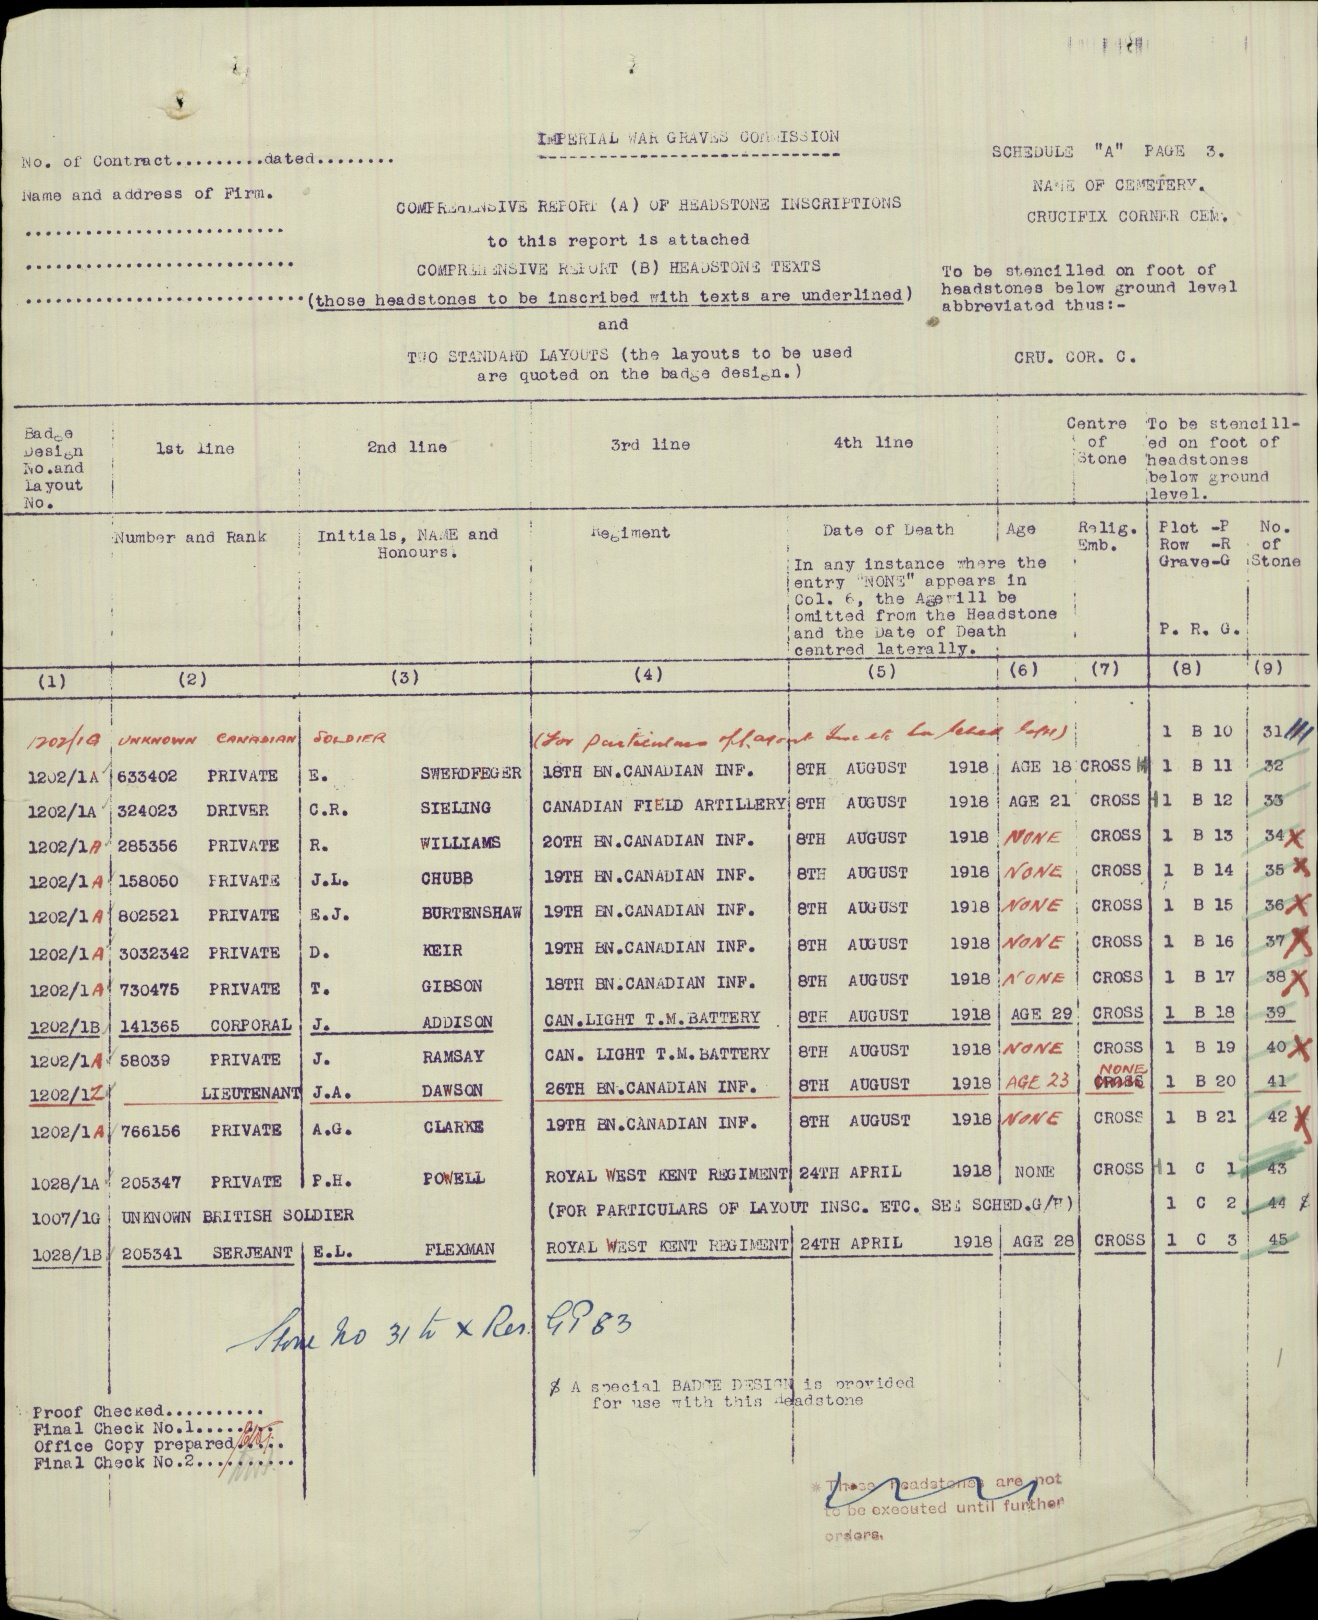 IMPERIAL WAR GRAVES COMMISSION
No. of Contract.........dated........
Name and address of Firm.
SCHEDULE "A" PAGE 3.
NAME OF CEMETERY.
CRUCIFIX CORNER CEM.
COMPREHENSIVE REPORT (A) OF HEADSTONE INSCRIPTIONS
to this report is attached
COMPREHENSIVE REPORT (B) HEADSTONE TEXTS
(those headstones to be inscribed with texts are underlined)
and
TWO STANDARD LAYOUTS (the layouts to be used
are quoted on the badge design.)
To be stencilled on foot of
headstones below ground level
abbreviated thus:-
CRU. COR. C.
Badge
Design
No.and
layout
No.
1st line
2nd line
3rd line
4th line
Centre
of
Stone
To be stencill-
ed on foot of
headstones
below ground
level.
Number and Rank
Initials, NAME and
Honours.
Regiment
Date of Death
In any instance where the
entry "NONE" appears in
Col. 6, the Age will be
omitted from the Headstone
and the Date of Death
centred laterally.
Age
Relig.
Emb.
Plot -P
Row -R
Grave-G
P. R. G.
No.
of
Stone
(1) (2) (3) (4) (5) (6) (7) (8) (9)
1202/1G UNKNOWN CANADIAN SOLDIER (For particulars of layout Insc etc 1 B 10 31
1202/1A 633402 PRIVATE E. SWERDFEGER 18TH BN.CANADIAN INF. 8TH AUGUST 1918 AGE 18 CROSS 1 B 11 32
1202/1A 324023 DRIVER C.R. SIELING CANADIAN FIELD ARTILLERY 8TH AUGUST 1918 AGE 21 CROSS 1 B 12 33
1202/1A 285356 PRIVATE R. WILLIAMS 20TH BN.CANADIAN INF. 8TH AUGUST 1918 NONE CROSS 1 B 13 34 X
1202/1A 158050 PRIVATE J.L. CHUBB 19TH BN.CANADIAN INF. 8TH AUGUST 1918 NONE CROSS 1 B 14 35 X
1202/1A 802521 PRIVATE E.J. BURTENSHAW 19TH BN.CANADIAN INF. 8TH AUGUST 1918 NONE CROSS 1 B 15 36 X
1202/1A 3032342 PRIVATE D. KEIR 19TH BN.CANADIAN INF. 8TH AUGUST 1918 NONE CROSS 1 B 16 37 X
1202/1A 730475 PRIVATE T. GIBSON 18TH BN.CANADIAN INF. 8TH AUGUST 1918 NONE CROSS 1 B 17 38 X
1202/1B 141365 CORPORAL J. ADDISON CAN.LIGHT T.M.BATTERY 8TH AUGUST 1918 AGE 29 CROSS 1 B 18 39
1202/1A 58039 PRIVATE J. RAMSAY CAN. LIGHT T.M.BATTERY 8TH AUGUST 1918 NONE CROSS 1 B 19 40 X
1202/1Z LIEUTENANT J.A. DAWSON 26TH BN.CANADIAN INF. 8TH AUGUST 1918 AGE 23 NONE CROSS 1 B 20 41
1202/1A 766156 PRIVATE A.G. CLARKE 19TH BN.CANADIAN INF. 8TH AUGUST 1918 NONE CROSS 1 B 21 42 X
1028/1A 205347 PRIVATE P.H. POWELL ROYAL WEST KENT REGIMENT 24TH APRIL 1918 NONE CROSS 1 C 1 43
1007/1G UNKNOWN BRITISH SOLDIER (FOR PARTICULARS OF LAYOUT INSC. ETC. SEE SCHED.G/H) 1 C 2 44 $
1028/1B 205341 SERJEANT E.L. FLEXMAN ROYAL WEST KENT REGIMENT 24TH APRIL 1918 AGE 28 CROSS 1 C 3 45
Stone No 31 to X Res. GP 83
$ A special BADGE DESIGN is provided
for use with this Headstone
Proof Checked..........
Final Check No.1........
Office Copy prepared.....
Final Check No.2..........
* These headstones are not
to be executed until further
orders.